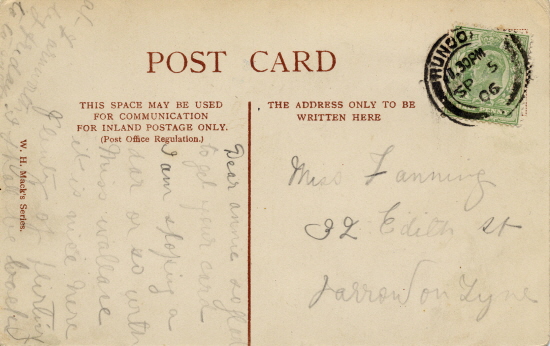 POST CARD
THIS SPACE MAY BE USED
FOR COMMUNICATION
FOR INLAND POSTAGE ONLY.
(Post Office Regulation.)
THE ADDRESS ONLY TO BE
WRITTEN HERE
11.30PM
SP 5
06
W. H. Mack's Series.
Dear annie so glad
to get your card
I am stoping a
or so with
Miss Wallace
it is nice here
Plenty of
Miss Fanning
32 Edith St
Jarrow on Tyne